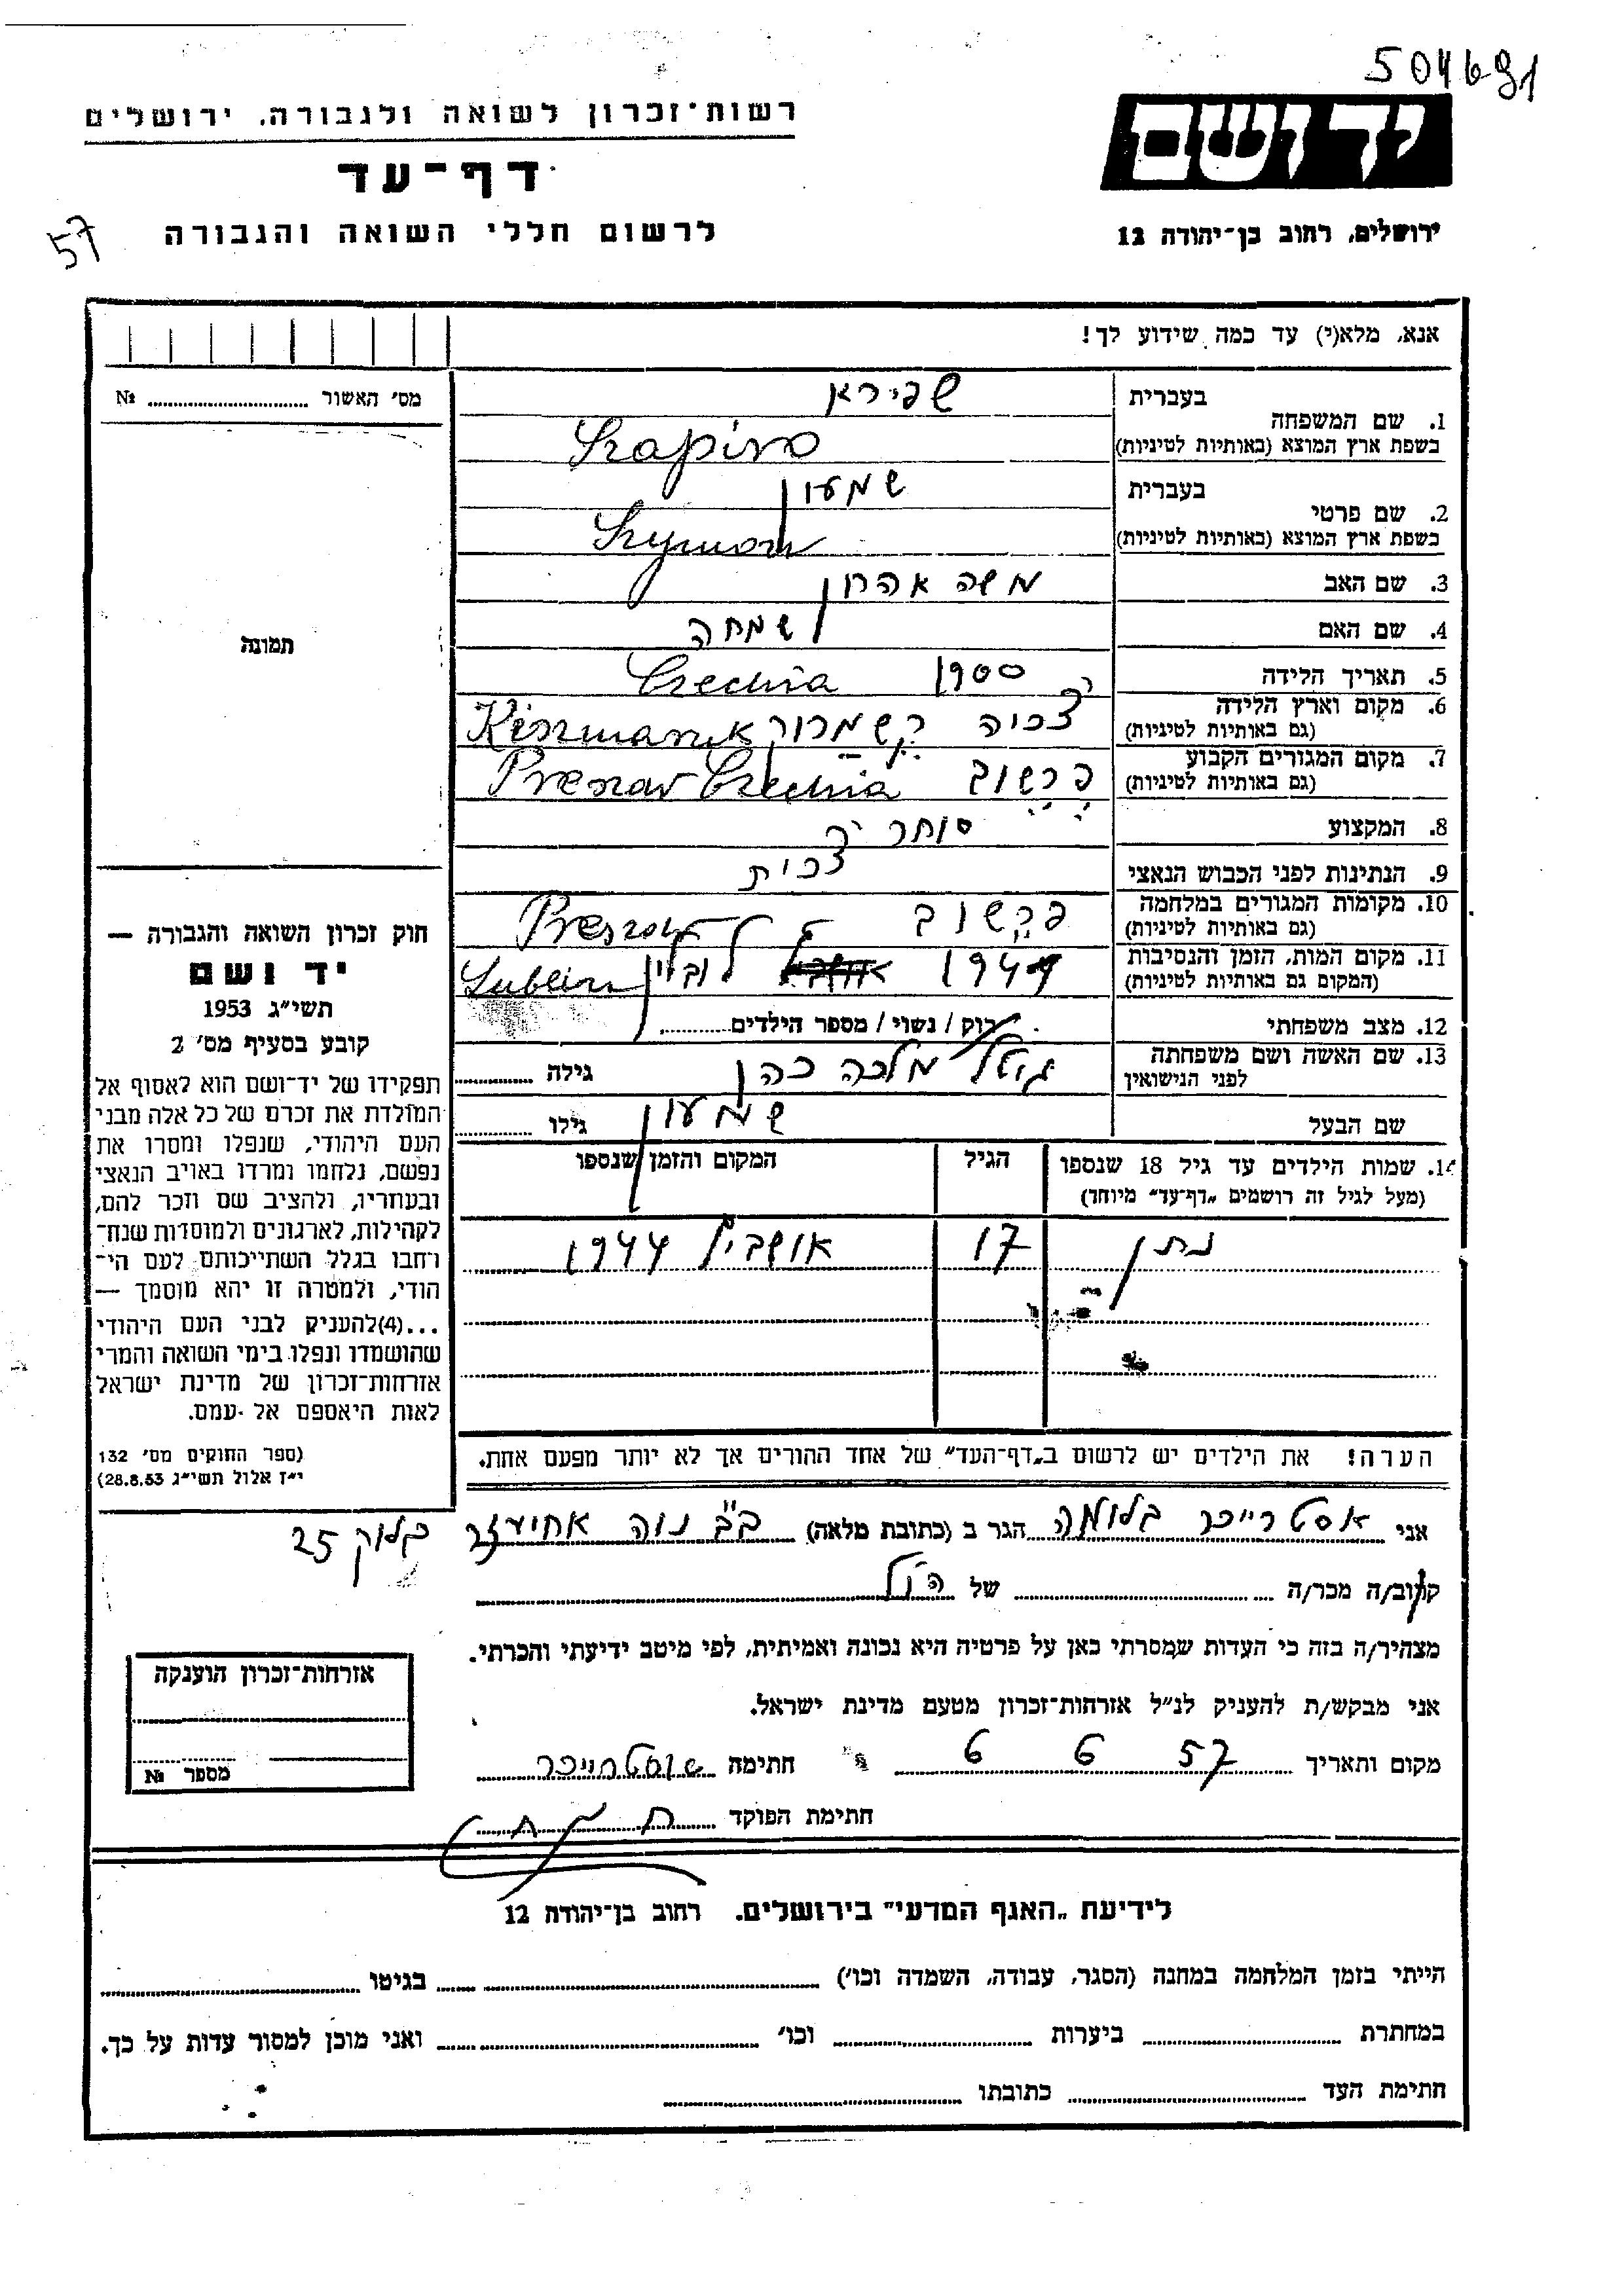 504691
רשות-זכרון לשואה ולגבורה, ירושלים
ידושם
דף-עד
לרשום חללי השואה והגבורה
57
ירושלים, רחוב בן-יהודה 12
אנא, מלא(י) עד כמה שידוע לך!
מס' האשור № ..........
תמונה
1. שם המשפחה בעברית שפירא
בשפת ארץ המוצא (באותיות לטיניות) Szapiro
2. שם פרטי בעברית שמעון
בשפת ארץ המוצא (באותיות לטיניות) Szymon
3. שם האב משה אהרון
4. שם האם שמחה
5. תאריך הלידה 1900 Czechia
6. מקום וארץ הלידה (גם באותיות לטיניות) צכיה
7. מקום המגורים הקבוע (גם באותיות לטיניות) פרשוב Czechia
8. המקצוע סוחר
9. הנתינות לפני הכבוש הנאצי צכית
10. מקומות המגורים במלחמה (גם באותיות לטיניות) פרשוב
11. מקום המות, הזמן והנסיבות (המקום גם באותיות לטיניות) לובלין Lublin
12. מצב משפחתי רווק / נשוי / מספר הילדים ..........
13. שם האשה ושם משפחתה לפני הנישואין גיטל מלכה כהן גילה ..........
שם הבעל שמעון גילו ..........
14. שמות הילדים עד גיל 18 שנספו (מעל לגיל זה רושמים „דף-עד" מיוחד) הגיל המקום והזמן שנספו
נתן 17 אושביץ 1944
הערה! את הילדים יש לרשום ב„דף-העד" של אחד ההורים אך לא יותר מפעם אחת.
חוק זכרון השואה והגבורה —
יד ושם
תשי״ג 1953
קובע בסעיף מס' 2
תפקידו של יד-ושם הוא לאסוף אל
המולדת את זכרם של כל אלה מבני
העם היהודי, שנפלו ומסרו את
נפשם, נלחמו ומרדו באויב הנאצי
ובעוזריו, ולהציב שם וזכר להם,
לקהילות, לארגונים ולמוסדות שנח-
רחבו בגלל השתייכותם לעם הי-
הודי, ולמטרה זו יהא מוסמך —
...(4)להעניק לבני העם היהודי
שהושמדו ונפלו בימי השואה והמרי
אזרחות-זכרון של מדינת ישראל
לאות היאספם אל עמם.
(ספר החוקים מס' 132
י״ז אלול תשי״ג 28.8.53)
אני אסטרייכר בלומה הגר ב (כתובת מלאה) ב״ב נוה אחיעזר בלוק 25
קרוב/ה מכר/ה .......... של הנ״ל
מצהיר/ה בזה כי העדות שמסרתי כאן על פרטיה היא נכונה ואמיתית, לפי מיטב ידיעתי והכרתי.
אני מבקש/ת להעניק לנ״ל אזרחות-זכרון מטעם מדינת ישראל.
מקום ותאריך 57 6 6 חתימה
חתימת הפוקד
אזרחות-זכרון הוענקה
מספר №
לידיעת „האגף המדעי" בירושלים. רחוב בן-יהודה 12
הייתי בזמן המלחמה במחנה (הסגר, עבודה, השמדה וכו') .......... בגיטו ..........
במחתרת .......... ביערות .......... וכו' .......... ואני מוכן למסור עדות על כך.
חתימת העד .......... כתובתו ..........